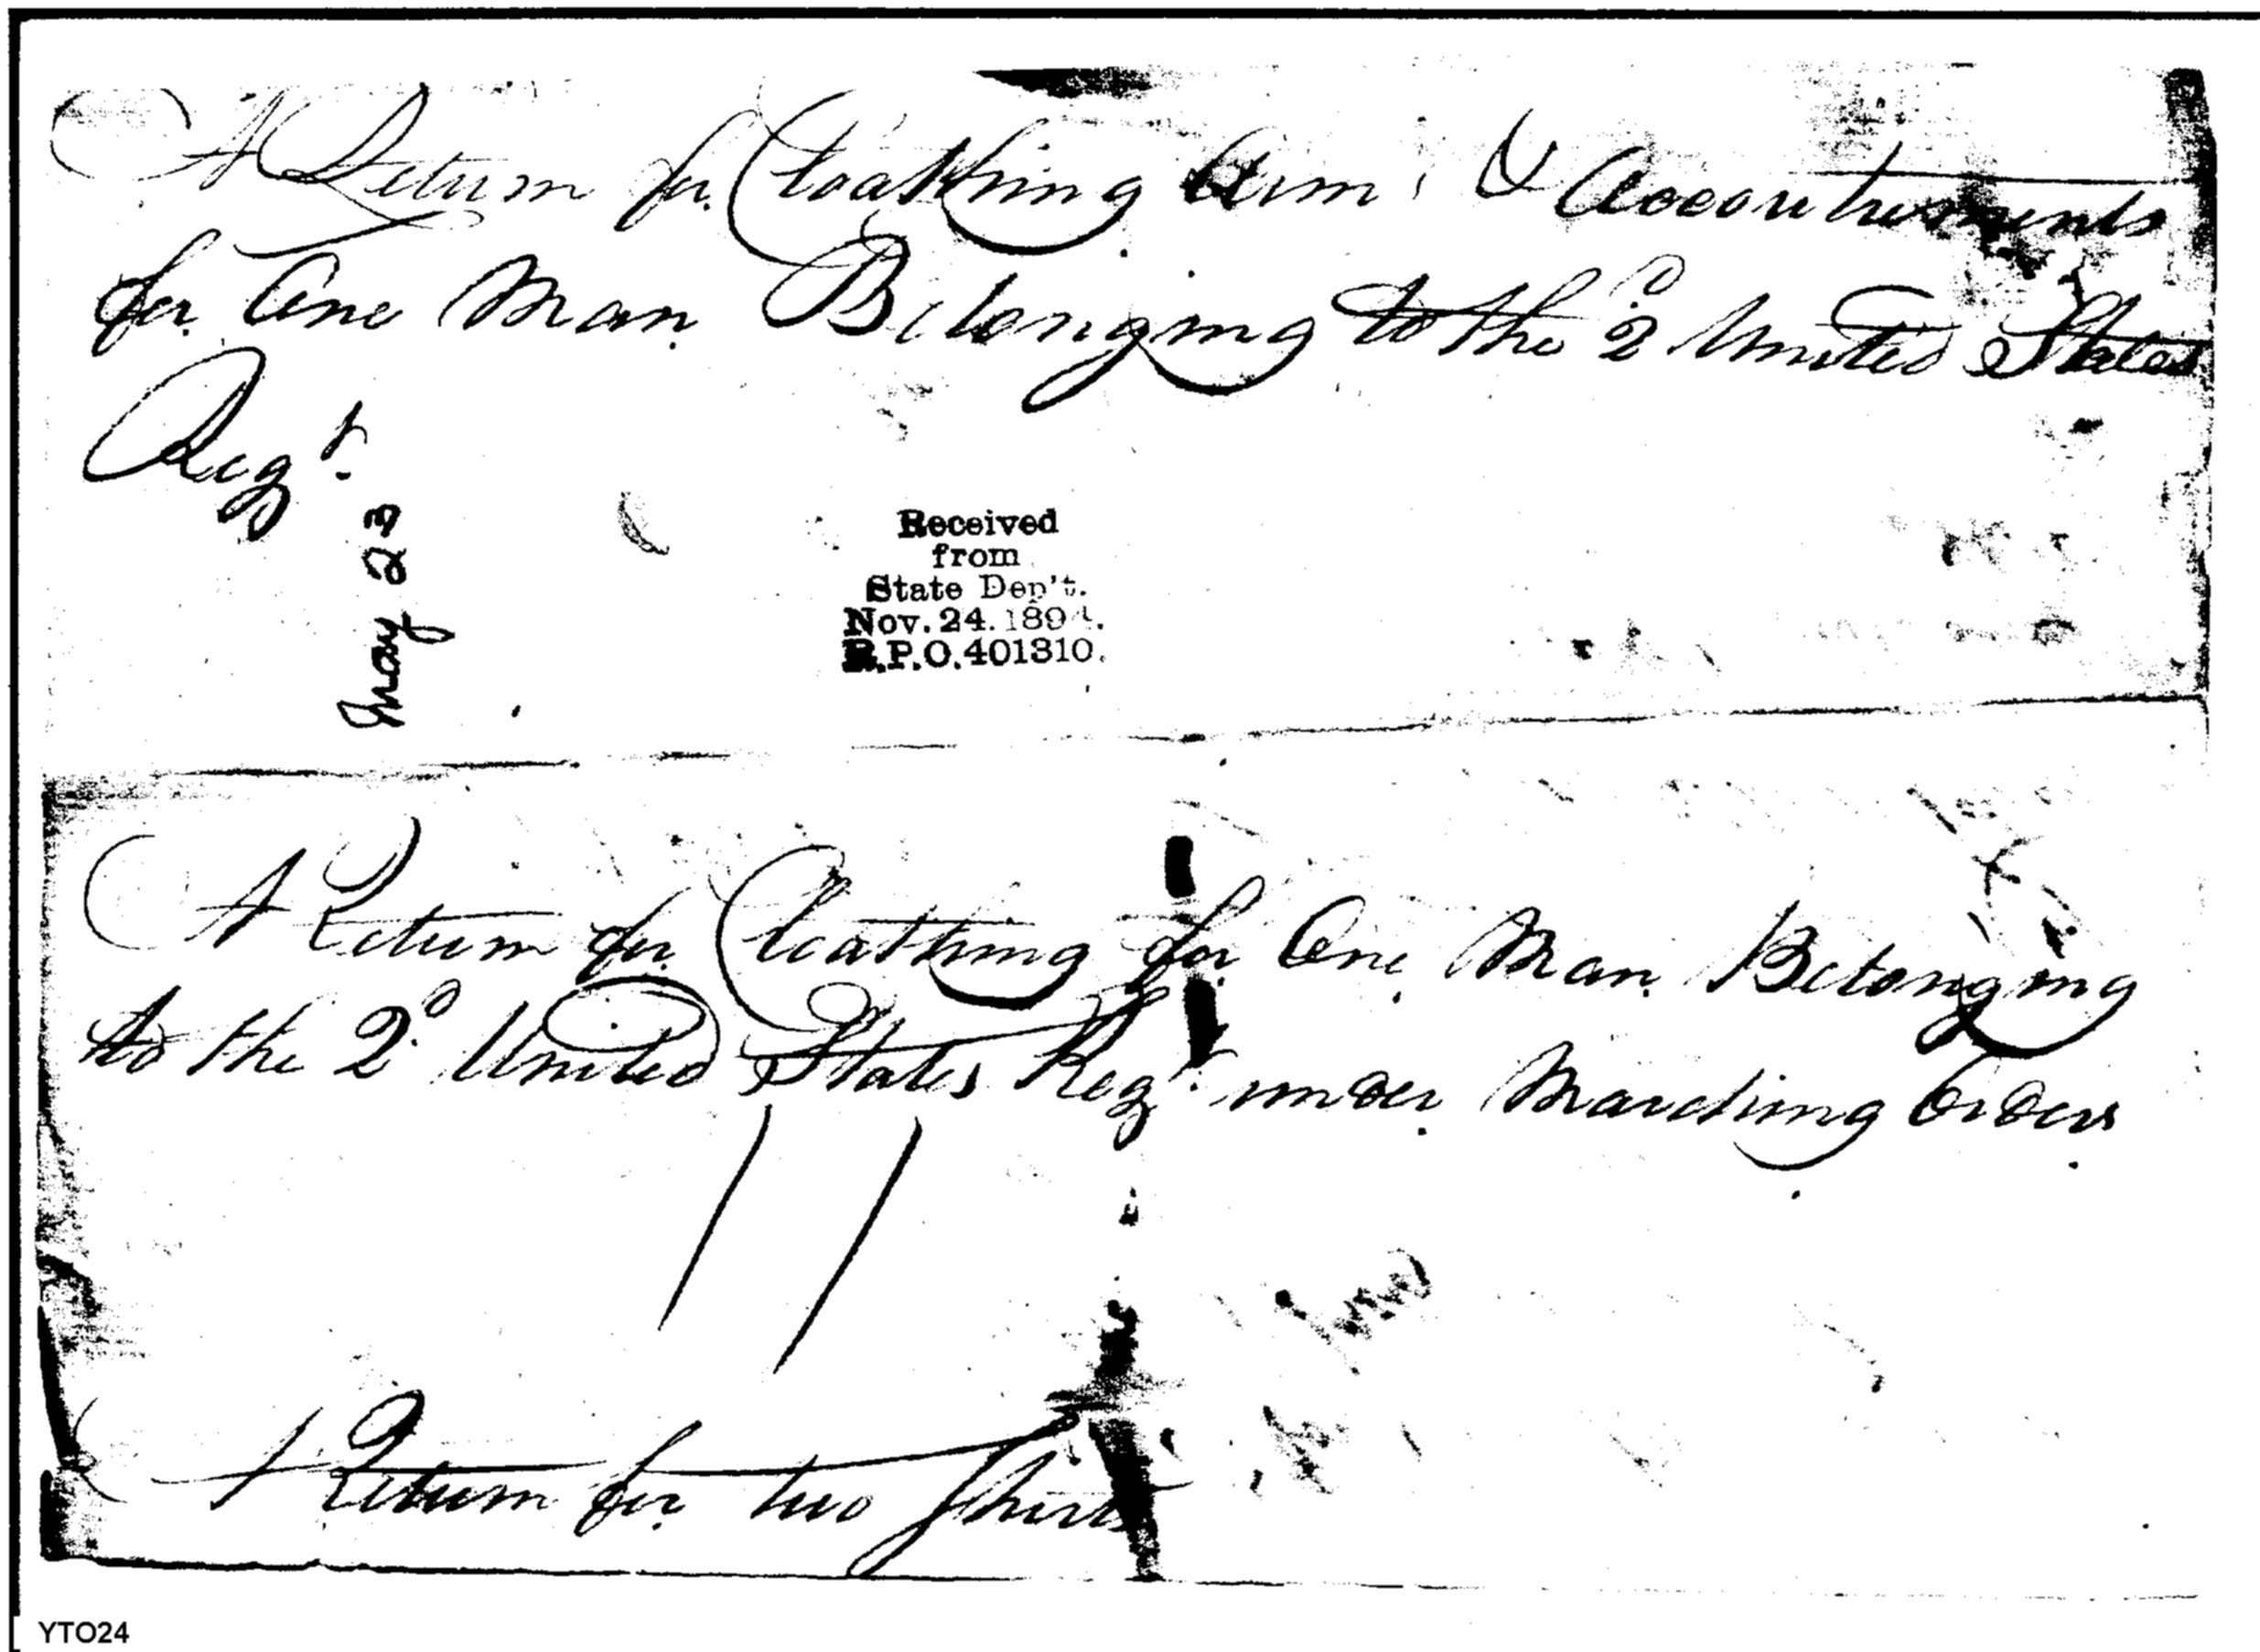 A Return for Cloathing Arms & Accoutrements
for One Man Belonging to the 2d United States
Regt.
May 23
Received
from
State Dep't.
Nov. 24. 1894.
R.P.O. 401310.
A Return for Cloathing for One Man Belonging
to the 2d United States Regt. under Marching Orders
A Return for two Shirts
YTO24